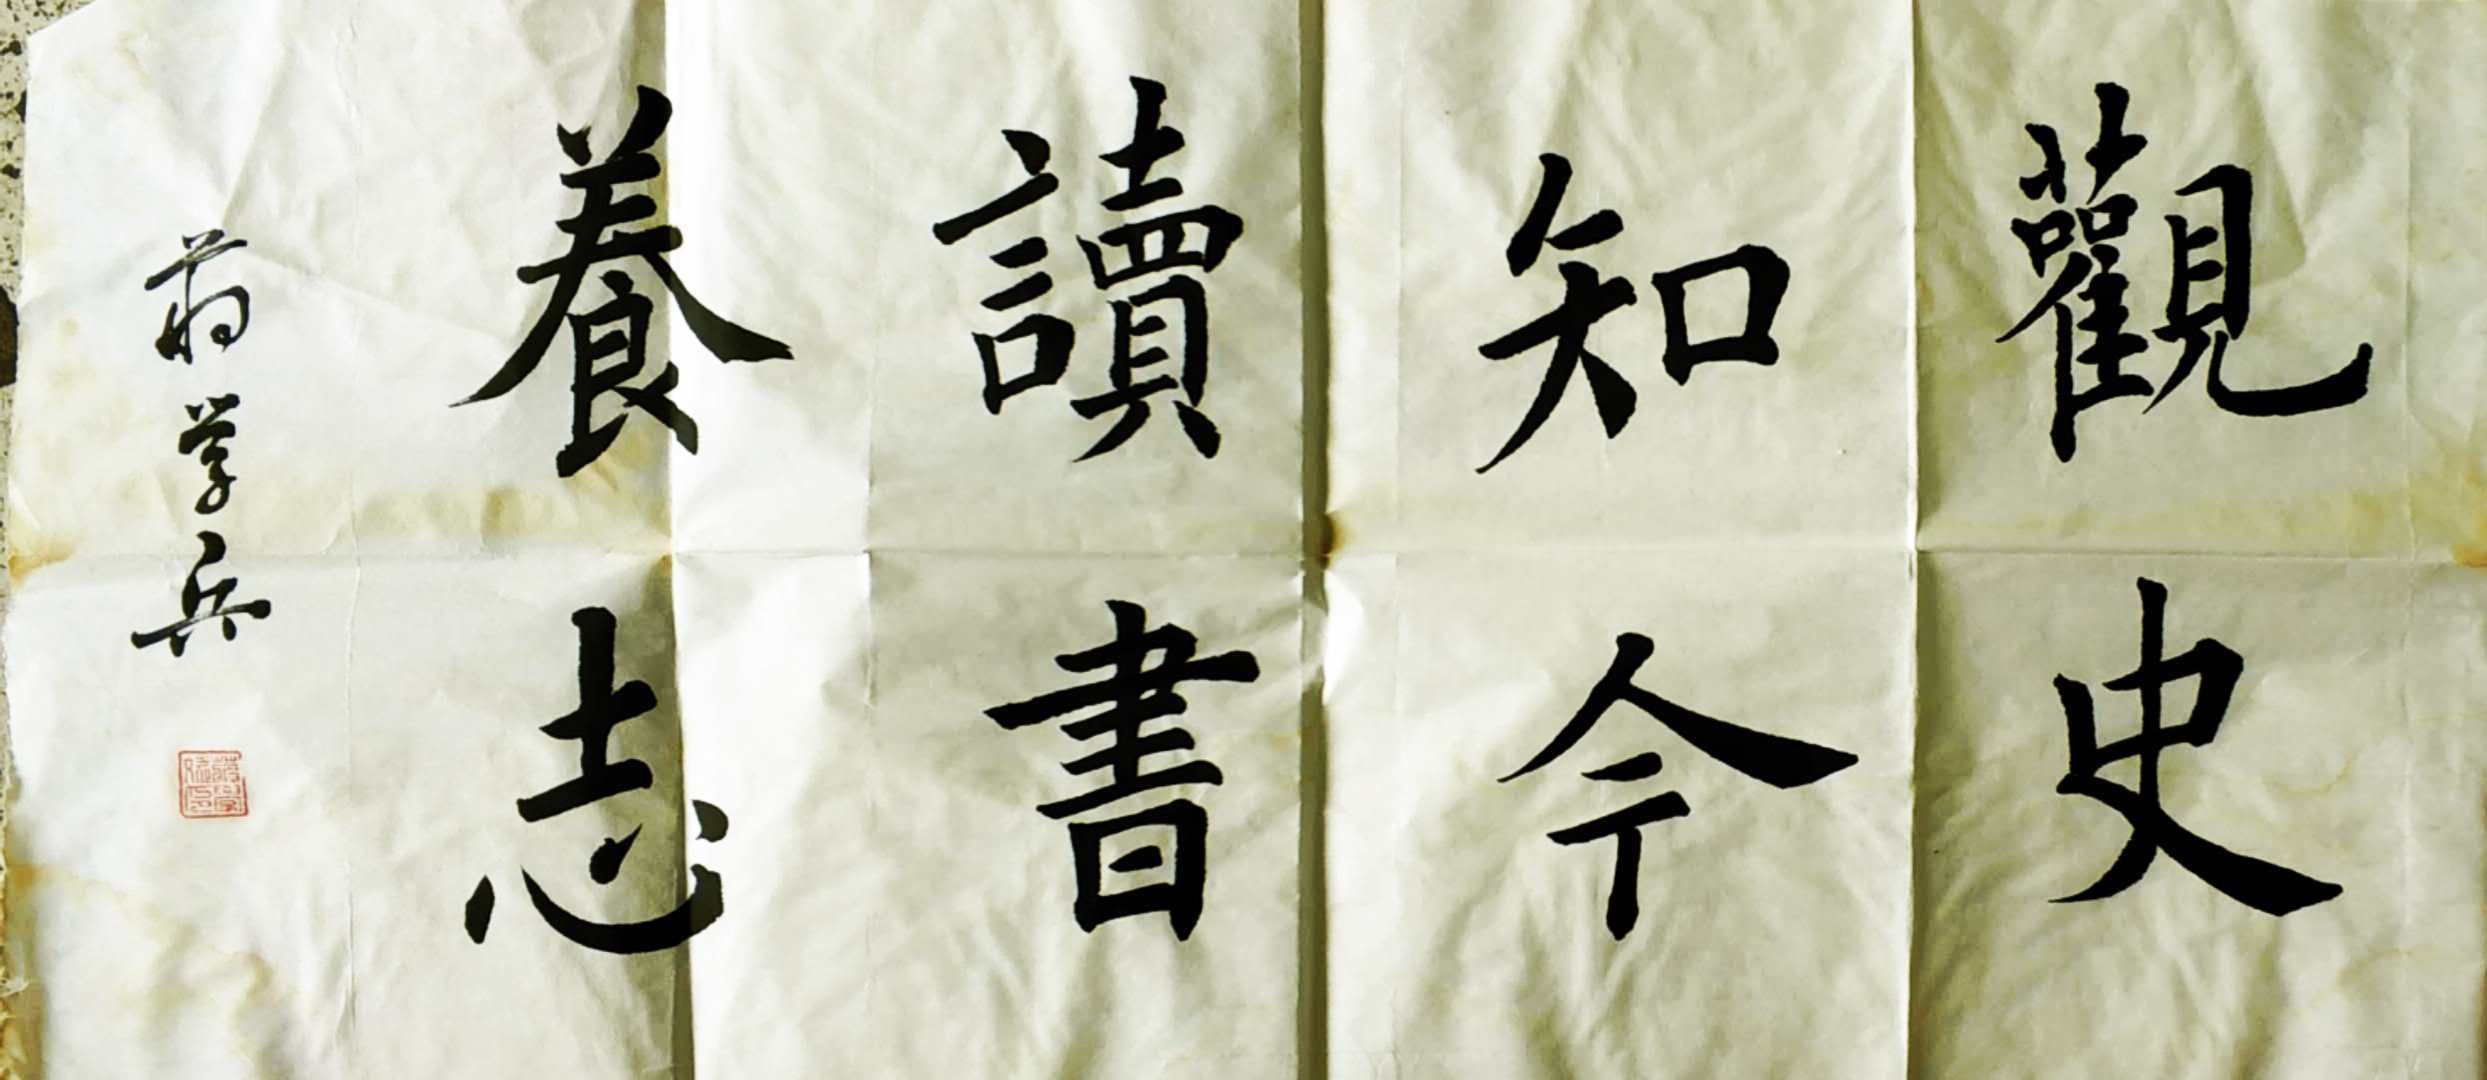 觀史
知今
讀書
養志
蒋学兵